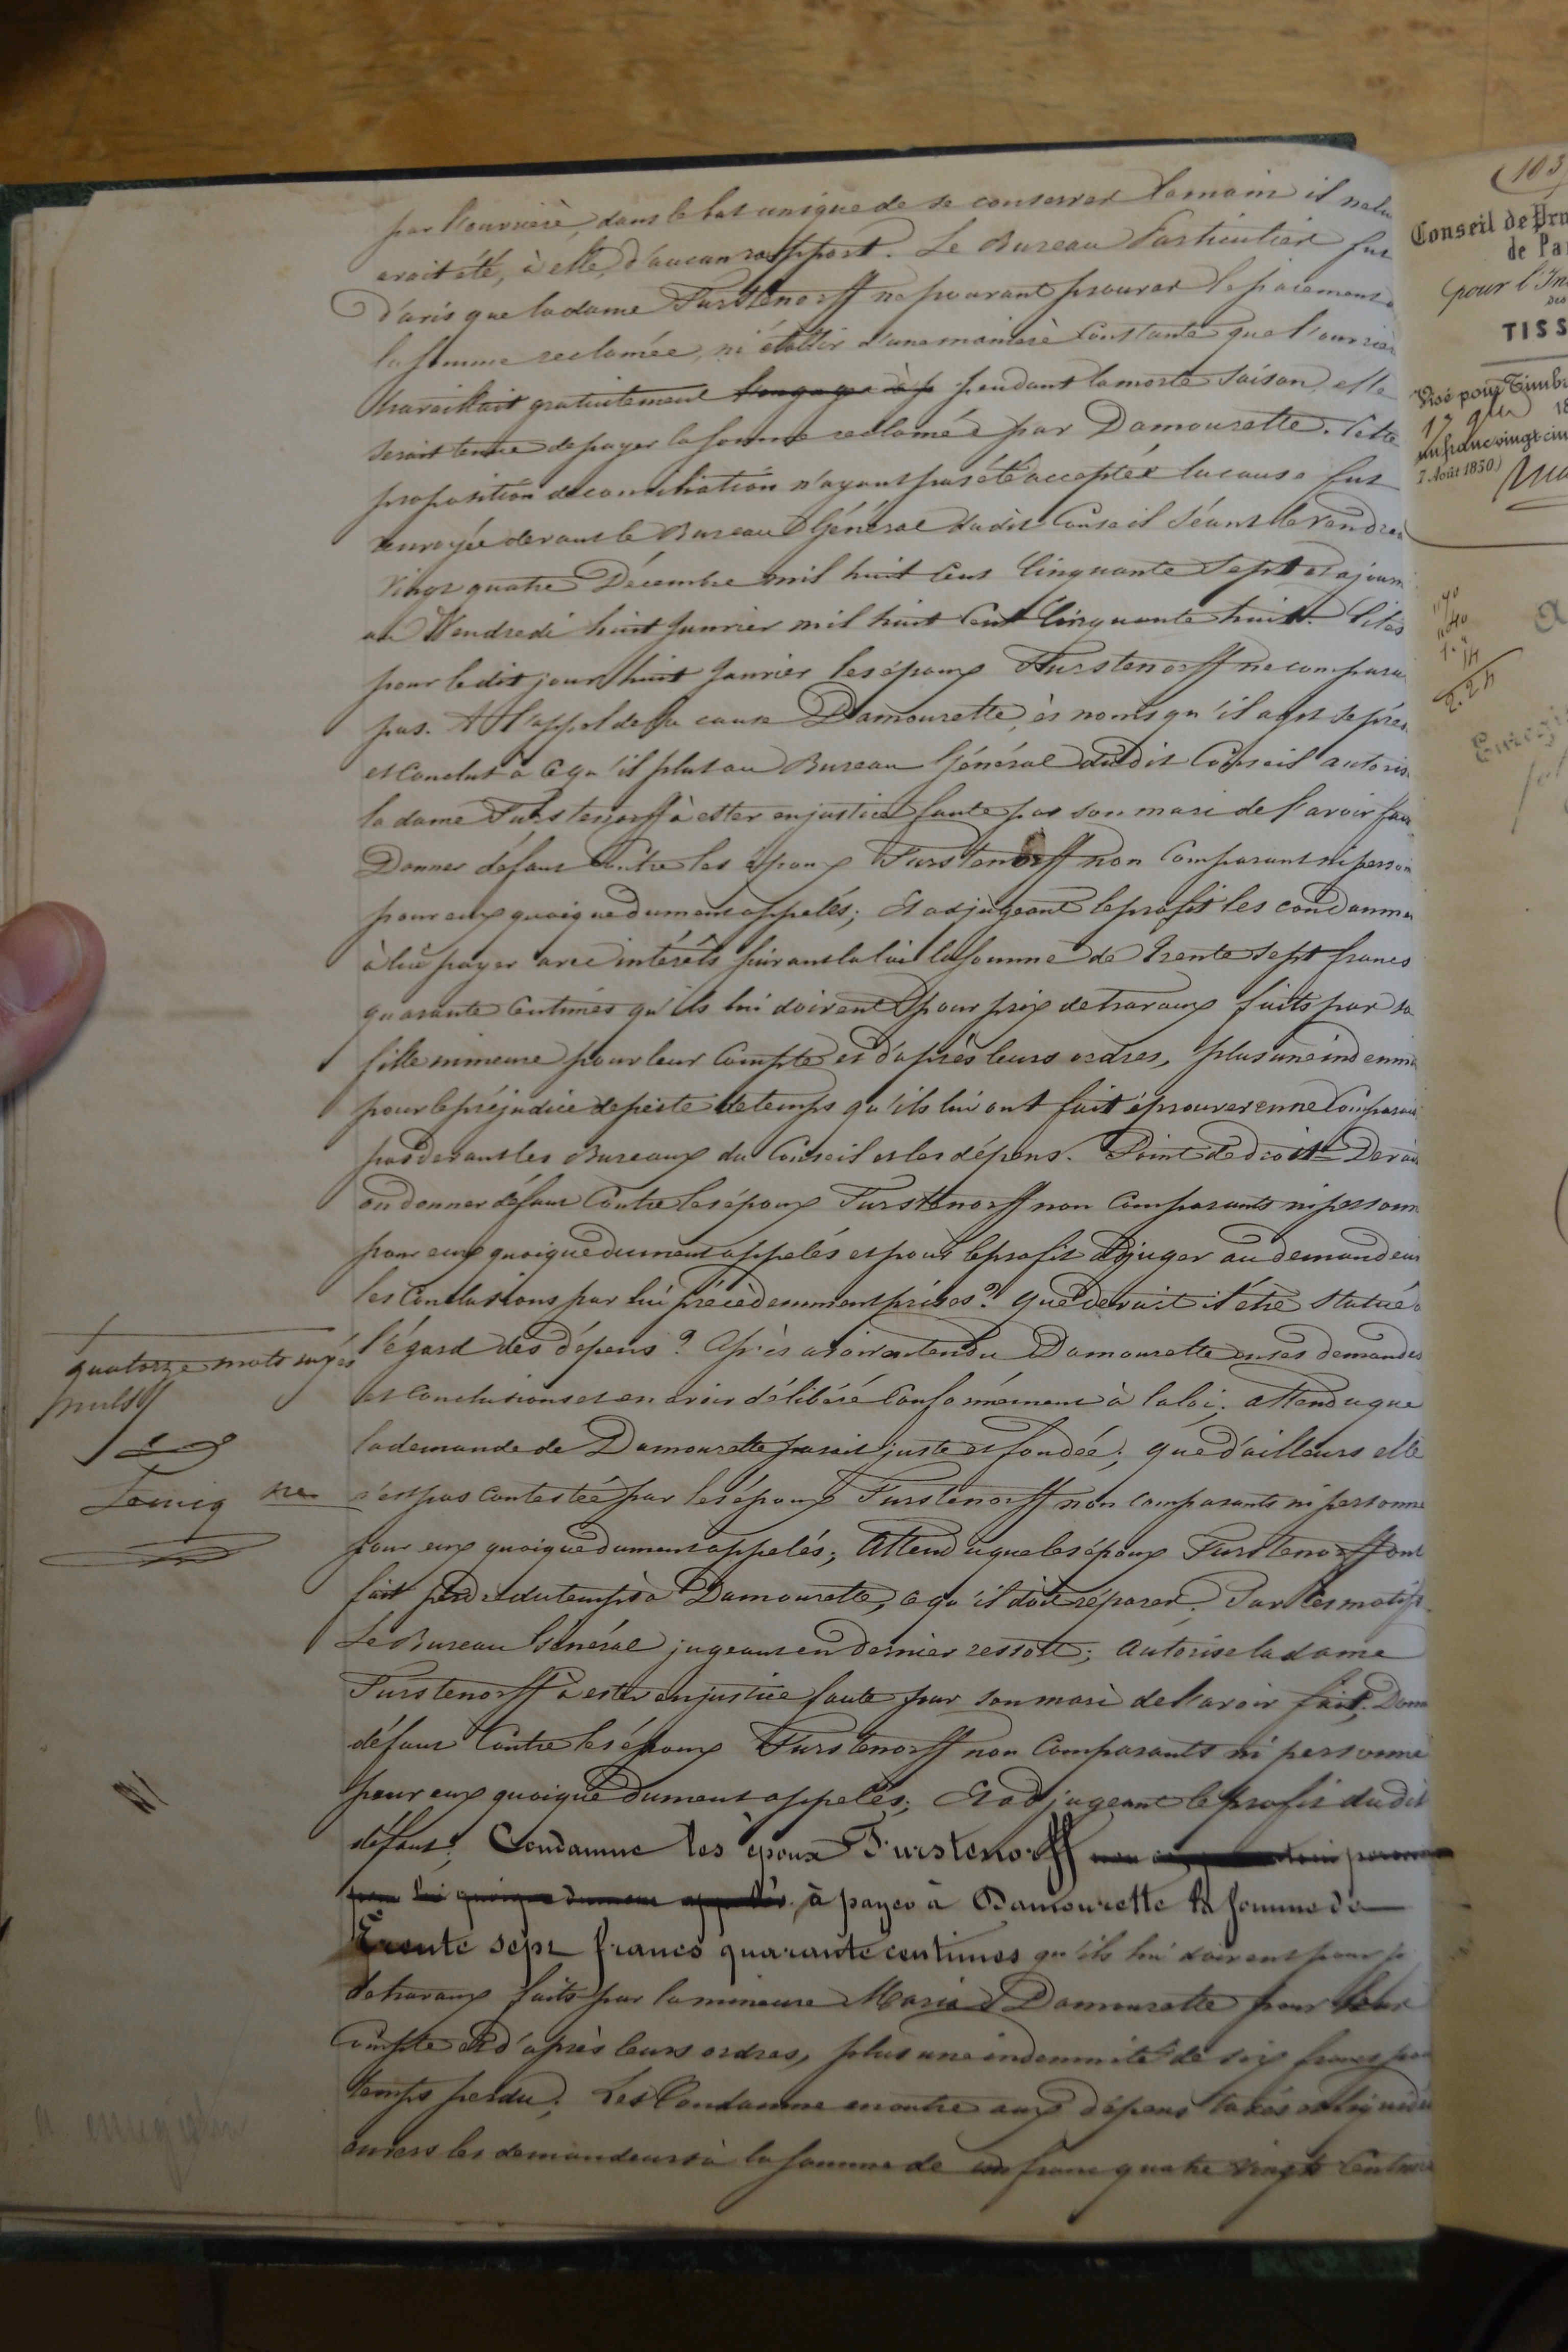 par l'ouvrière, dans le but unique de se conserver la main il ne lu
avait été, à elle, d'aucun rapport. Le Bureau Particulier fut
d'avis que la dame Furstenorff ne pouvant prouver le paiement d
la somme reclamée, ni établir d'une manière constante que l'ouvrièr
travaillait gratuitement pendant la morte saison, elle
serait tenue de payer la somme reclamée par Damourette. Cette
proposition de conciliation n'ayant pas été acceptée la cause fut
renvoyée devant le Bureau Général dudit Conseil Séant le vendre
vingt quatre Décembre mil huit cent cinquante sept et ajourn
au Vendredi huit Janvier mil huit cent cinquante huit. Cités
pour ledit jour huit Janvier les époux Furstenorff ne comparu
pas. A l'appel de la cause Damourette, ès noms qu'il agit se prés
et conclut à ce qu'il plut au Bureau Général dudit Conseil autoris
la dame Furstenorff à ester en justice faute par son mari de l'avoir fai
Donner défaut contre les époux Furstenorff non comparant ni person
pour eux quoique dument appelés; Et adjugeant le profit les condamne
à lui payer avec intérêts suivant la loi la somme de trente sept francs
quarante centimes qu'ils lui doivent pour prix de travaux faits par sa
fille mineure pour leur compte et d'après leurs ordres, plus une indemni
pour le préjudice de perte de temps qu'ils lui ont fait éprouver en ne comparais
pas devant les Bureaux du Conseil et les dépens. Point de droit. Devait
on donner défaut contre les époux Furstenorff non comparants ni personn
pour eux quoique dument appelés et pour le profit adjuger au demandeur
les conclusions par lui précédemment prises? Que devait-il être statué à
l'égard des dépens? Après avoir entendu Damourette en ses demandes
et conclusions et en avoir délibéré conformément à la loi; attendu que
la demande de Damourette parait juste et fondée; que d'ailleurs elle
n'est pas contestée par les époux Furstenorff non comparants ni personne
pour eux quoique dument appelés; Attendu que les époux Furstenorff ont
fait perdre du temps à Damourette, ce qu'il doit réparer; Par ces motifs
Le Bureau Général jugeant en dernier ressort; Autorise la dame
Furstenorff à ester en justice faute par son mari de l'avoir fait; Donn
défaut contre les époux Furstenorff non comparants ni personne
pour eux quoique dument appelés; Et adjugeant le profit dudit
défaut; Condamne les époux Furstenorff non personne
quoique dument appelés à payer à Damourette la somme de
Trente sept francs quarante centimes qu'ils lui doivent pour p
de travaux faits par la mineure Maria Damourette pour leur
compte et d'après leurs ordres, plus une indemnité de six francs pour
temps perdu; Les Condamne en outre aux dépens taxés et liquidé
envers les demandeurs à la somme de un franc quatre vingts centimes
quatorze mots rayés
nuls
(103)
Conseil de Pru
de Pa
pour l'In
DES
TISS
Visé pour Timbre
un franc vingt cin
7 Août 1850)